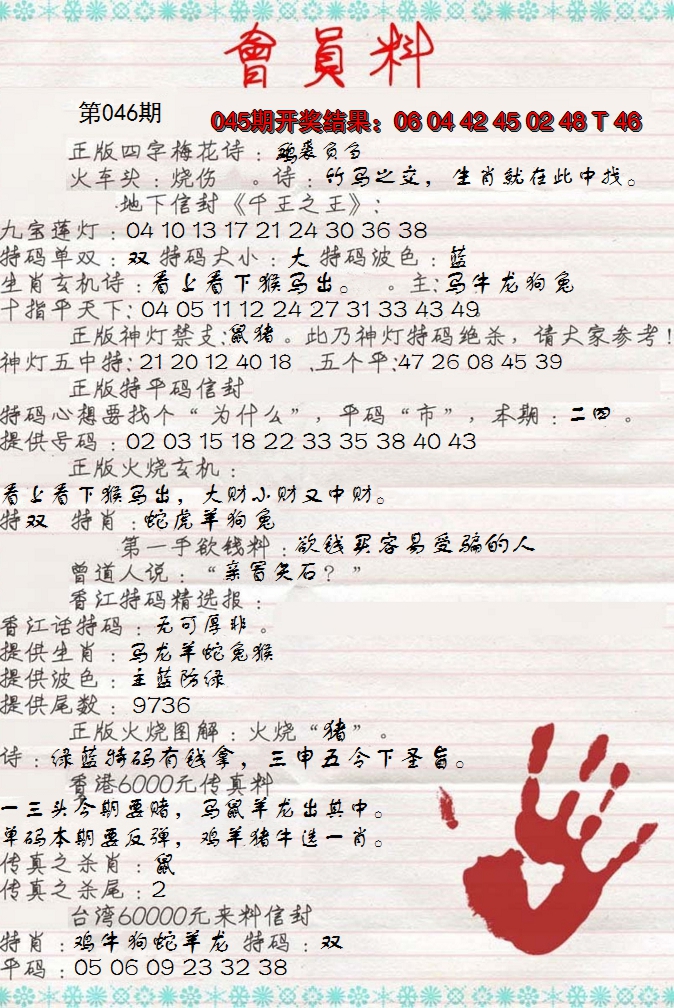 會員料
第046期
045期开奖结果：06 04 42 45 02 48 T 46
正版四字梅花诗：鸡裘负刍
火车头：烧伤 。诗：竹马之交，生肖就在此中找。
地下信封《千王之王》：
九宝莲灯：04 10 13 17 21 24 30 36 38
特码单双：双 特码大小：大 特码波色：蓝
生肖玄机诗：看上看下猴马出。 。主：马牛龙狗兔
十指平天下：04 05 11 12 24 27 31 33 43 49
正版神灯禁支：鼠猪。此乃神灯特码绝杀，请大家参考！
神灯五中特：21 20 12 40 18 .五个平：47 26 08 45 39
正版特平码信封
特码心想要找个“为什么”，平码“市”，本期：二四。
提供号码：02 03 15 18 22 33 35 38 40 43
正版火烧玄机：
看上看下猴马出，大财小财又中财。
特双 特肖：蛇虎羊狗兔
第一手欲钱料：欲钱买容易受骗的人
曾道人说：“亲冒矢石？”
香江特码精选报：
香江话特码：无可厚非。
提供生肖：马龙羊蛇兔猴
提供波色：主蓝防绿
提供尾数：9736
正版火烧图解：火烧“猪”。
诗：绿蓝特码有钱拿，三申五令下圣旨。
香港6000元传真料
一三头今期要赌，马鼠羊龙出其中。
单码本期要反弹，鸡羊猪牛选一肖。
传真之杀肖：鼠
传真之杀尾：2
台湾60000元来料信封
特肖：鸡牛狗蛇羊龙 特码：双
平码：05 06 09 23 32 38